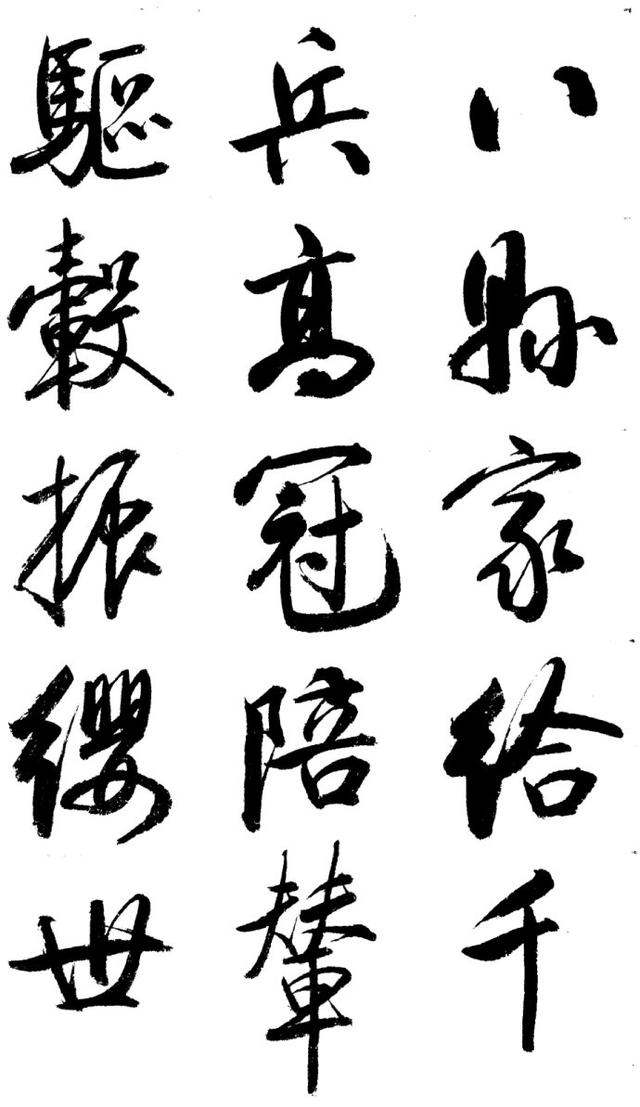 八縣家給千
兵高冠陪輦
驅轂振纓世